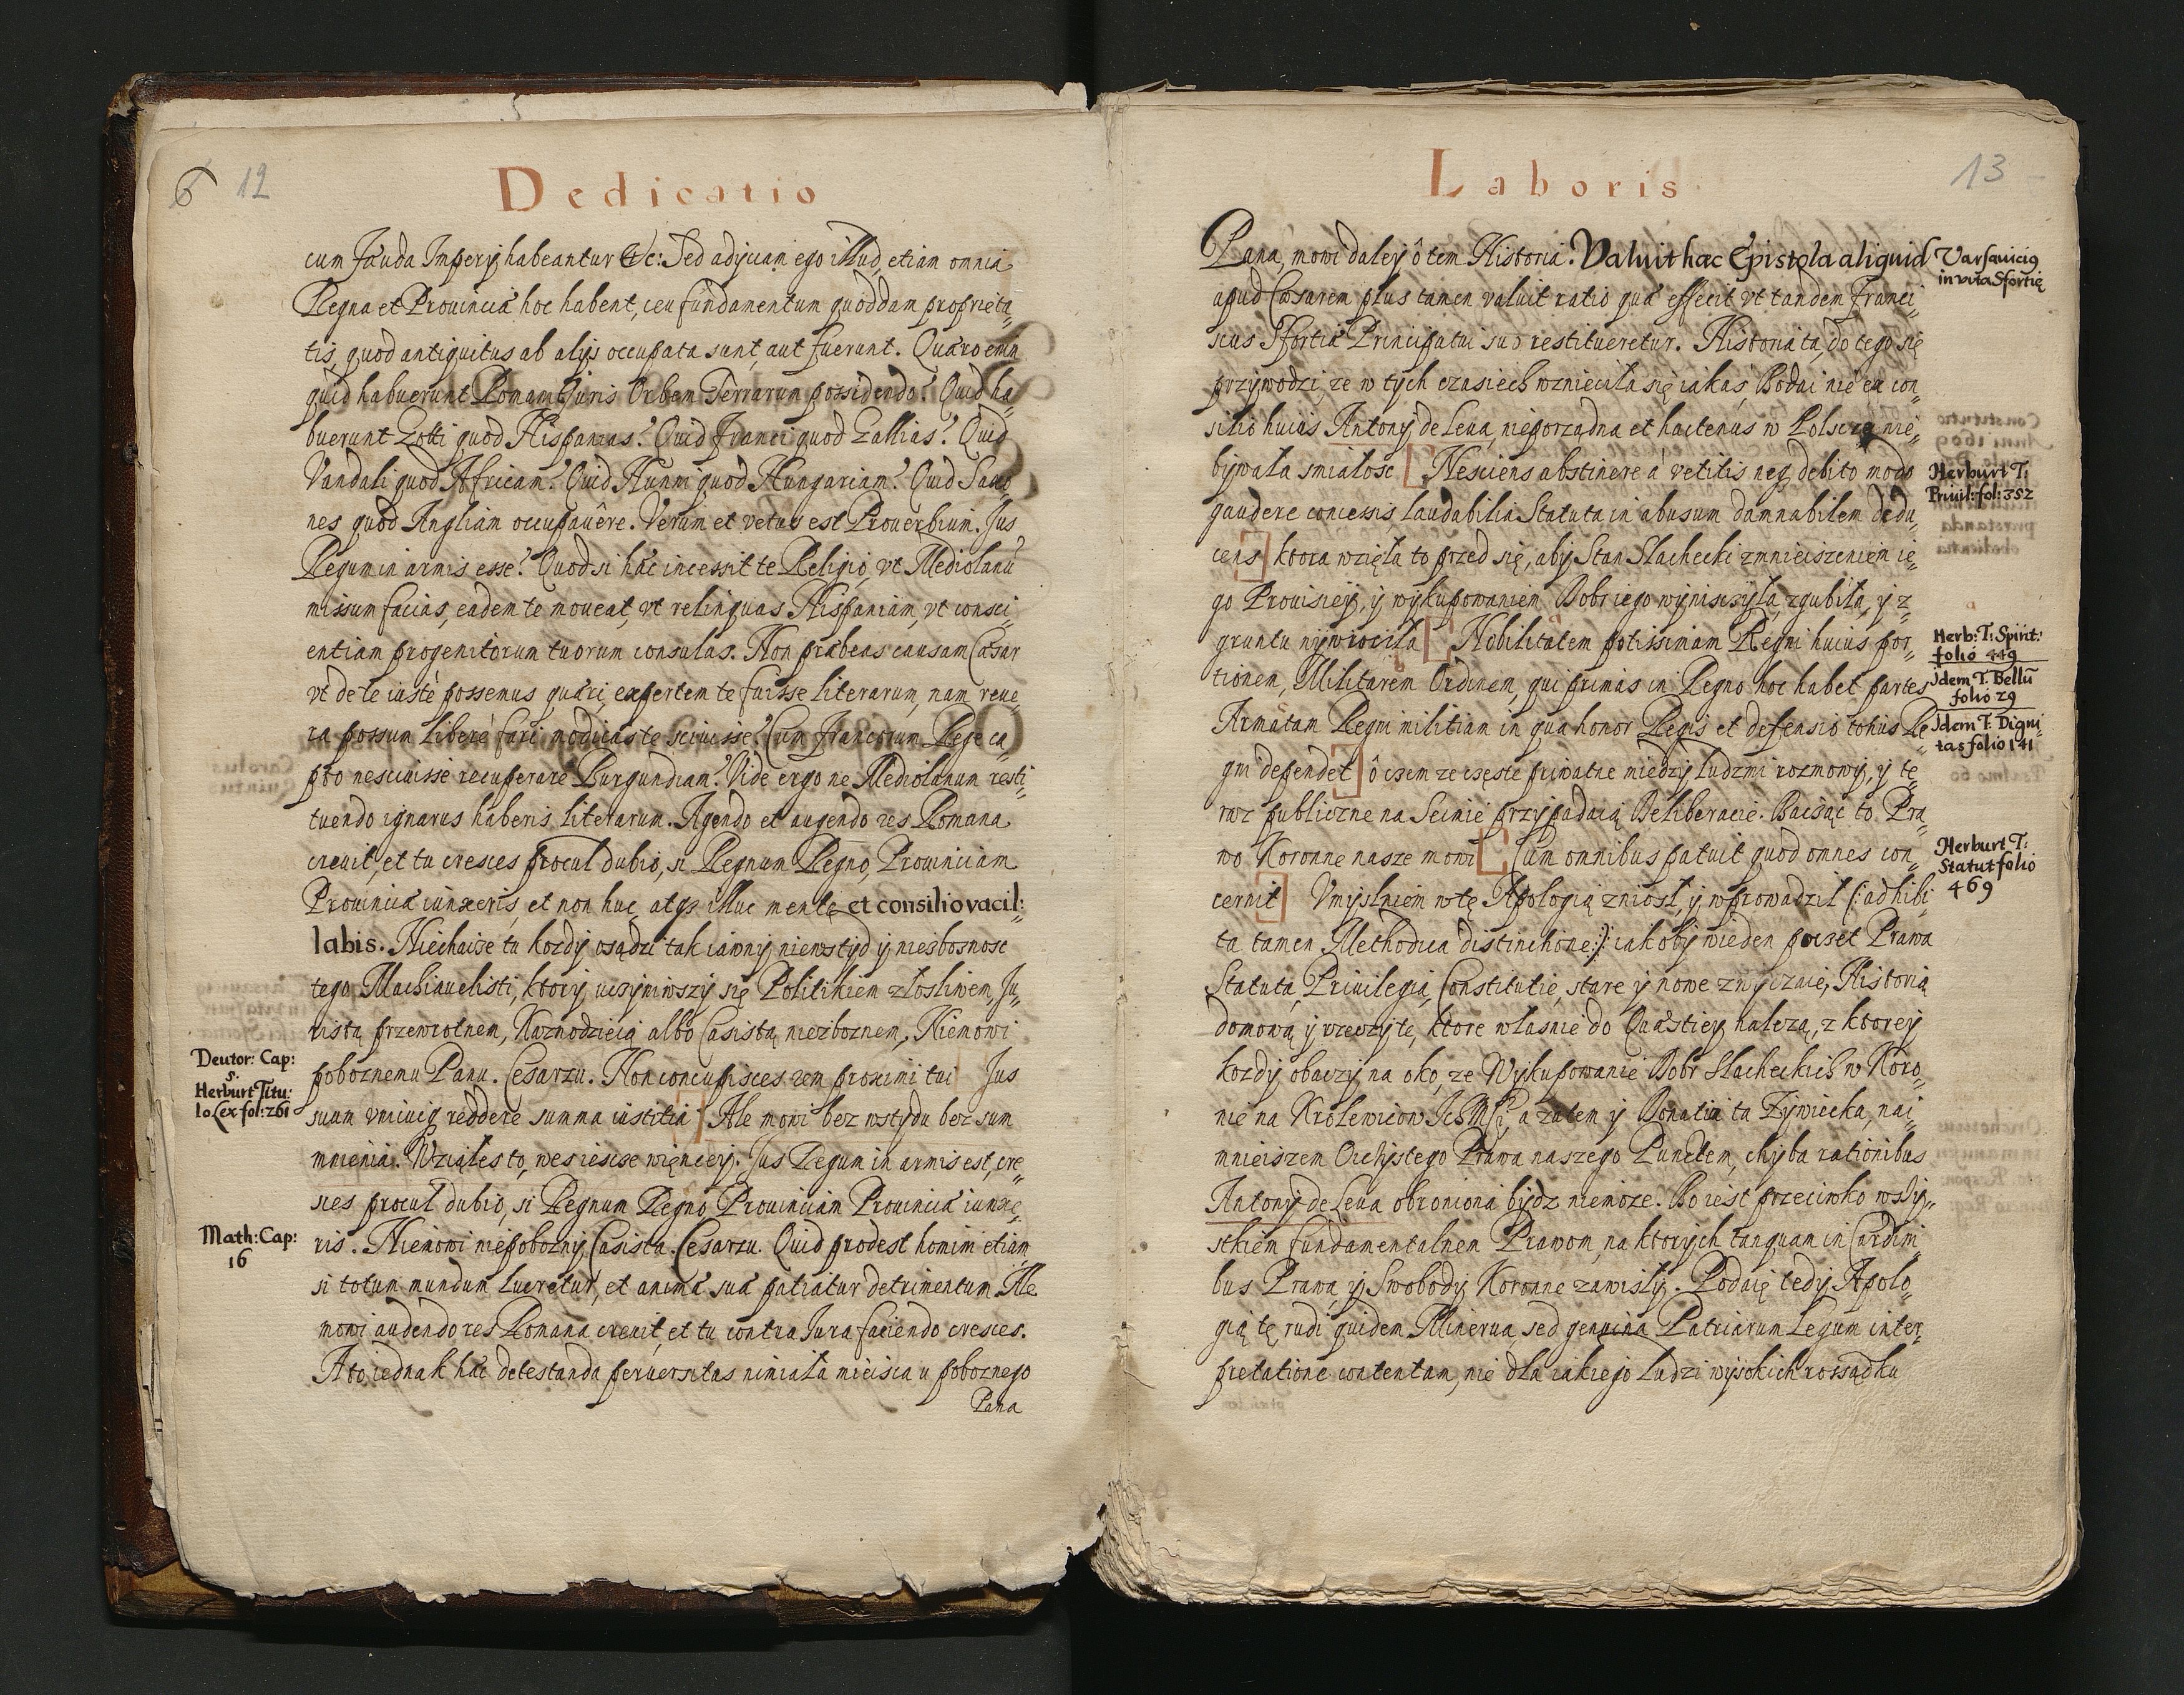 6 12
Dedicatio
cum fæuda Imperÿ habeantur &c: Sed adÿciam ego illud, etiam omnia
Regna et Prouinciæ hoc habent, ceu fundamentum quoddam proprieta„
tis, quod antiquitus ab alÿs occupata sunt, aut fuerunt. Quæro enim
quid habuerunt Romani Juris Orbem Terrarum possidendo? Quid ha„
buerunt Gotti quod Hispanias? Quid Franci quod Gallias? Quid
Vandali quod Africam? Quid Hunni quod Hungariam? Quid Saxo„
nes quod Angliam occupauêre. Verum et vetus est Prouerbium. Jus
Regum in armis esse? Quod si hæc incessit te Religio, vt Mediolanũ
missum facias, eadem te moueat, vt relinquas Hispaniam, vt consci„
entiam progenitorum tuorum consulas. Non præbeas causam Cæsar
vt de te iustè possemus quæri, expertem te fuisse literarum, nam reue„
ra possum liberè fari modicas te sciuisse? Cum Francorum Rege ca„
pto nesciuisse recuperare Burgundiam? Vide ergo ne Mediolanum resti„
tuendo ignarus haberis literarum. Agendo et augendo res Romana
creuit, et tu cresces procul dubio, si Regnum Regno, Prouinciam
Prouinciæ iunxeris, et non huc, atq; illuc mente et consilio vacil:
labis. Niechaiże tu kozdÿ osądzi tak iawnÿ niewstÿd ÿ niezboznosc
tego Machiauelisti, ktorÿ vczÿniwszÿ się Politikiem złosliwem, Ju„
ristą przewrotnem, Kaznodzieią albo Casistą niezboznem, Niemowi
poboznemu Panu. Cesarzu. Non concupisces rem proximi tui Jus
suum vnicuiq; reddere summa iustitia] Ale mowi bez wstÿdu bez sum
mnienia. Wziąłes to, wes iescze więnceÿ. Jus Regum in armis est, cre„
sces procul dubio, si Regnum Regno Prouinciam Prouinciæ iunxe„
ris. Niemowi niepoboznÿ Casista. Cesarzu. Quid prodest homini etiam
si totum mundum lucretur, et animæ suæ patiatur detrimentum. Ale
mowi audendo res Romana creuit, et tu contra Jura faciendo cresces.
A to iednak hæc detestanda peruersitas nimiała mieisca u poboznego
Pana
Deutor: Cap:
5.
Herburt Titu:
lo Lex fol: 261
Math: Cap:
16
13
Laboris
Pana, mowi daleÿ ô tem Historia. Valuit hac Epistola aliquid
apud Cæsarem plus tamen valuit ratio quæ effecit vt tandem Franci„
scus Sfortia Principatui suo restitueretur. Historia ta, do tego się
przÿwodzi, ze w tÿch czasiech wznieciła się iakas, Bodai nie ex con„
silio huius Antonÿ de Leua, nieporządna et hactenus w Polscze nie„
bÿwała smiałosc [Nesciens abstinere à vetitis neq; debito modo
gaudere concessis, laudabilia Statuta in abusum damnabilem dedu„
cens] ktora wzięła to przed się, abÿ Stan Slachecki zmnieiszeniem ie„
go Prouisieÿ, ÿ wÿkupowaniem Dobr iego wÿniscsÿła, zgubiła, ÿ z
gruntu wÿwrociła [Nobilitatem potissimam Regni huius por„
tionem, Militarem Ordinem, qui primas in Regno hoc habet partes
Armatam Regni militiam in qua honor Regis et defensio totius Re„
gni defendet] ô czem ze częste priwatne miedzÿ ludzmi rozmowÿ, ÿ te„
raz publiczne na Seimie przÿpadaią Deliberacie. Bacsąc to Pra„
wo Koronne nasze mowi [Cum omnibus patuit quod omnes con„
cernit] Vmÿslniem w tę Apologią zniosł, ÿ wprowadził (: adhibi„
ta tamen Methodica distinctione:) iakobÿ wieden poczet Prawa
Statuta, Priuilegia, Constitutie, stare ÿ nowe zwÿczaie, Historią
domową ÿ vrzęzÿte, ktore własnie do Quæstieÿ należą, z ktoreÿ
kozdÿ obaczÿ na oko, ze Wÿkupowanie Dobr Slacheckich w Koro„
nie na Krolewicow Ich Mści, a zatem ÿ Donatia ta Zÿwiecka, nai„
mnieiszem Oicżÿstego Prawa naszego Punctem, chÿba rationibus
Antonÿ de Leua obroniona bÿdz niemoze. Bo iest przeciwko wszÿ„
stkiem fundamentalnem Prawom, na ktorÿch tanquam in Cardini„
bus Prawa ÿ Swobodÿ Koronne zawisłÿ. Podaię tedÿ Apolo„
gią tę, rudi quidem Minerua, sed genuina Patriarum Legum inter„
pretatione contentam, nie dla iakiego ludzi wÿsokich rossądku
Varsauici9
in vita Sfortię
Herburt T:
Priuil: fol: 352
Herb: T: Spirit:
folio 449
Jdem T. Bellũ
folio 29
Jdem T: Digni„
tas folio 141
Herburt T:
Statut folio
469